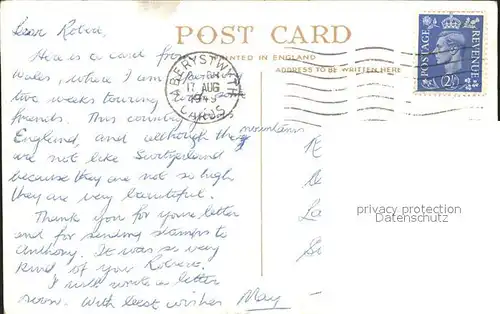 POST CARD
PRINTED IN ENGLAND
ADDRESS TO BE WRITTEN HERE
POSTAGE
REVENUE
2½D
ABERYSTWYTH
17 AUG
1949
CARDS
Dear Robert,
Here is a card from
Wales, where I am
two weeks touring with some
friends. This country
England, and although the mountains
are not like Switzerland
because they are not so high
they are very beautiful.
Thank you for your letter
and for sending stamps to
Anthony. It was so very
kind of you Robert.
I will write a letter
soon. With best wishes May
privacy protection
Datenschutz